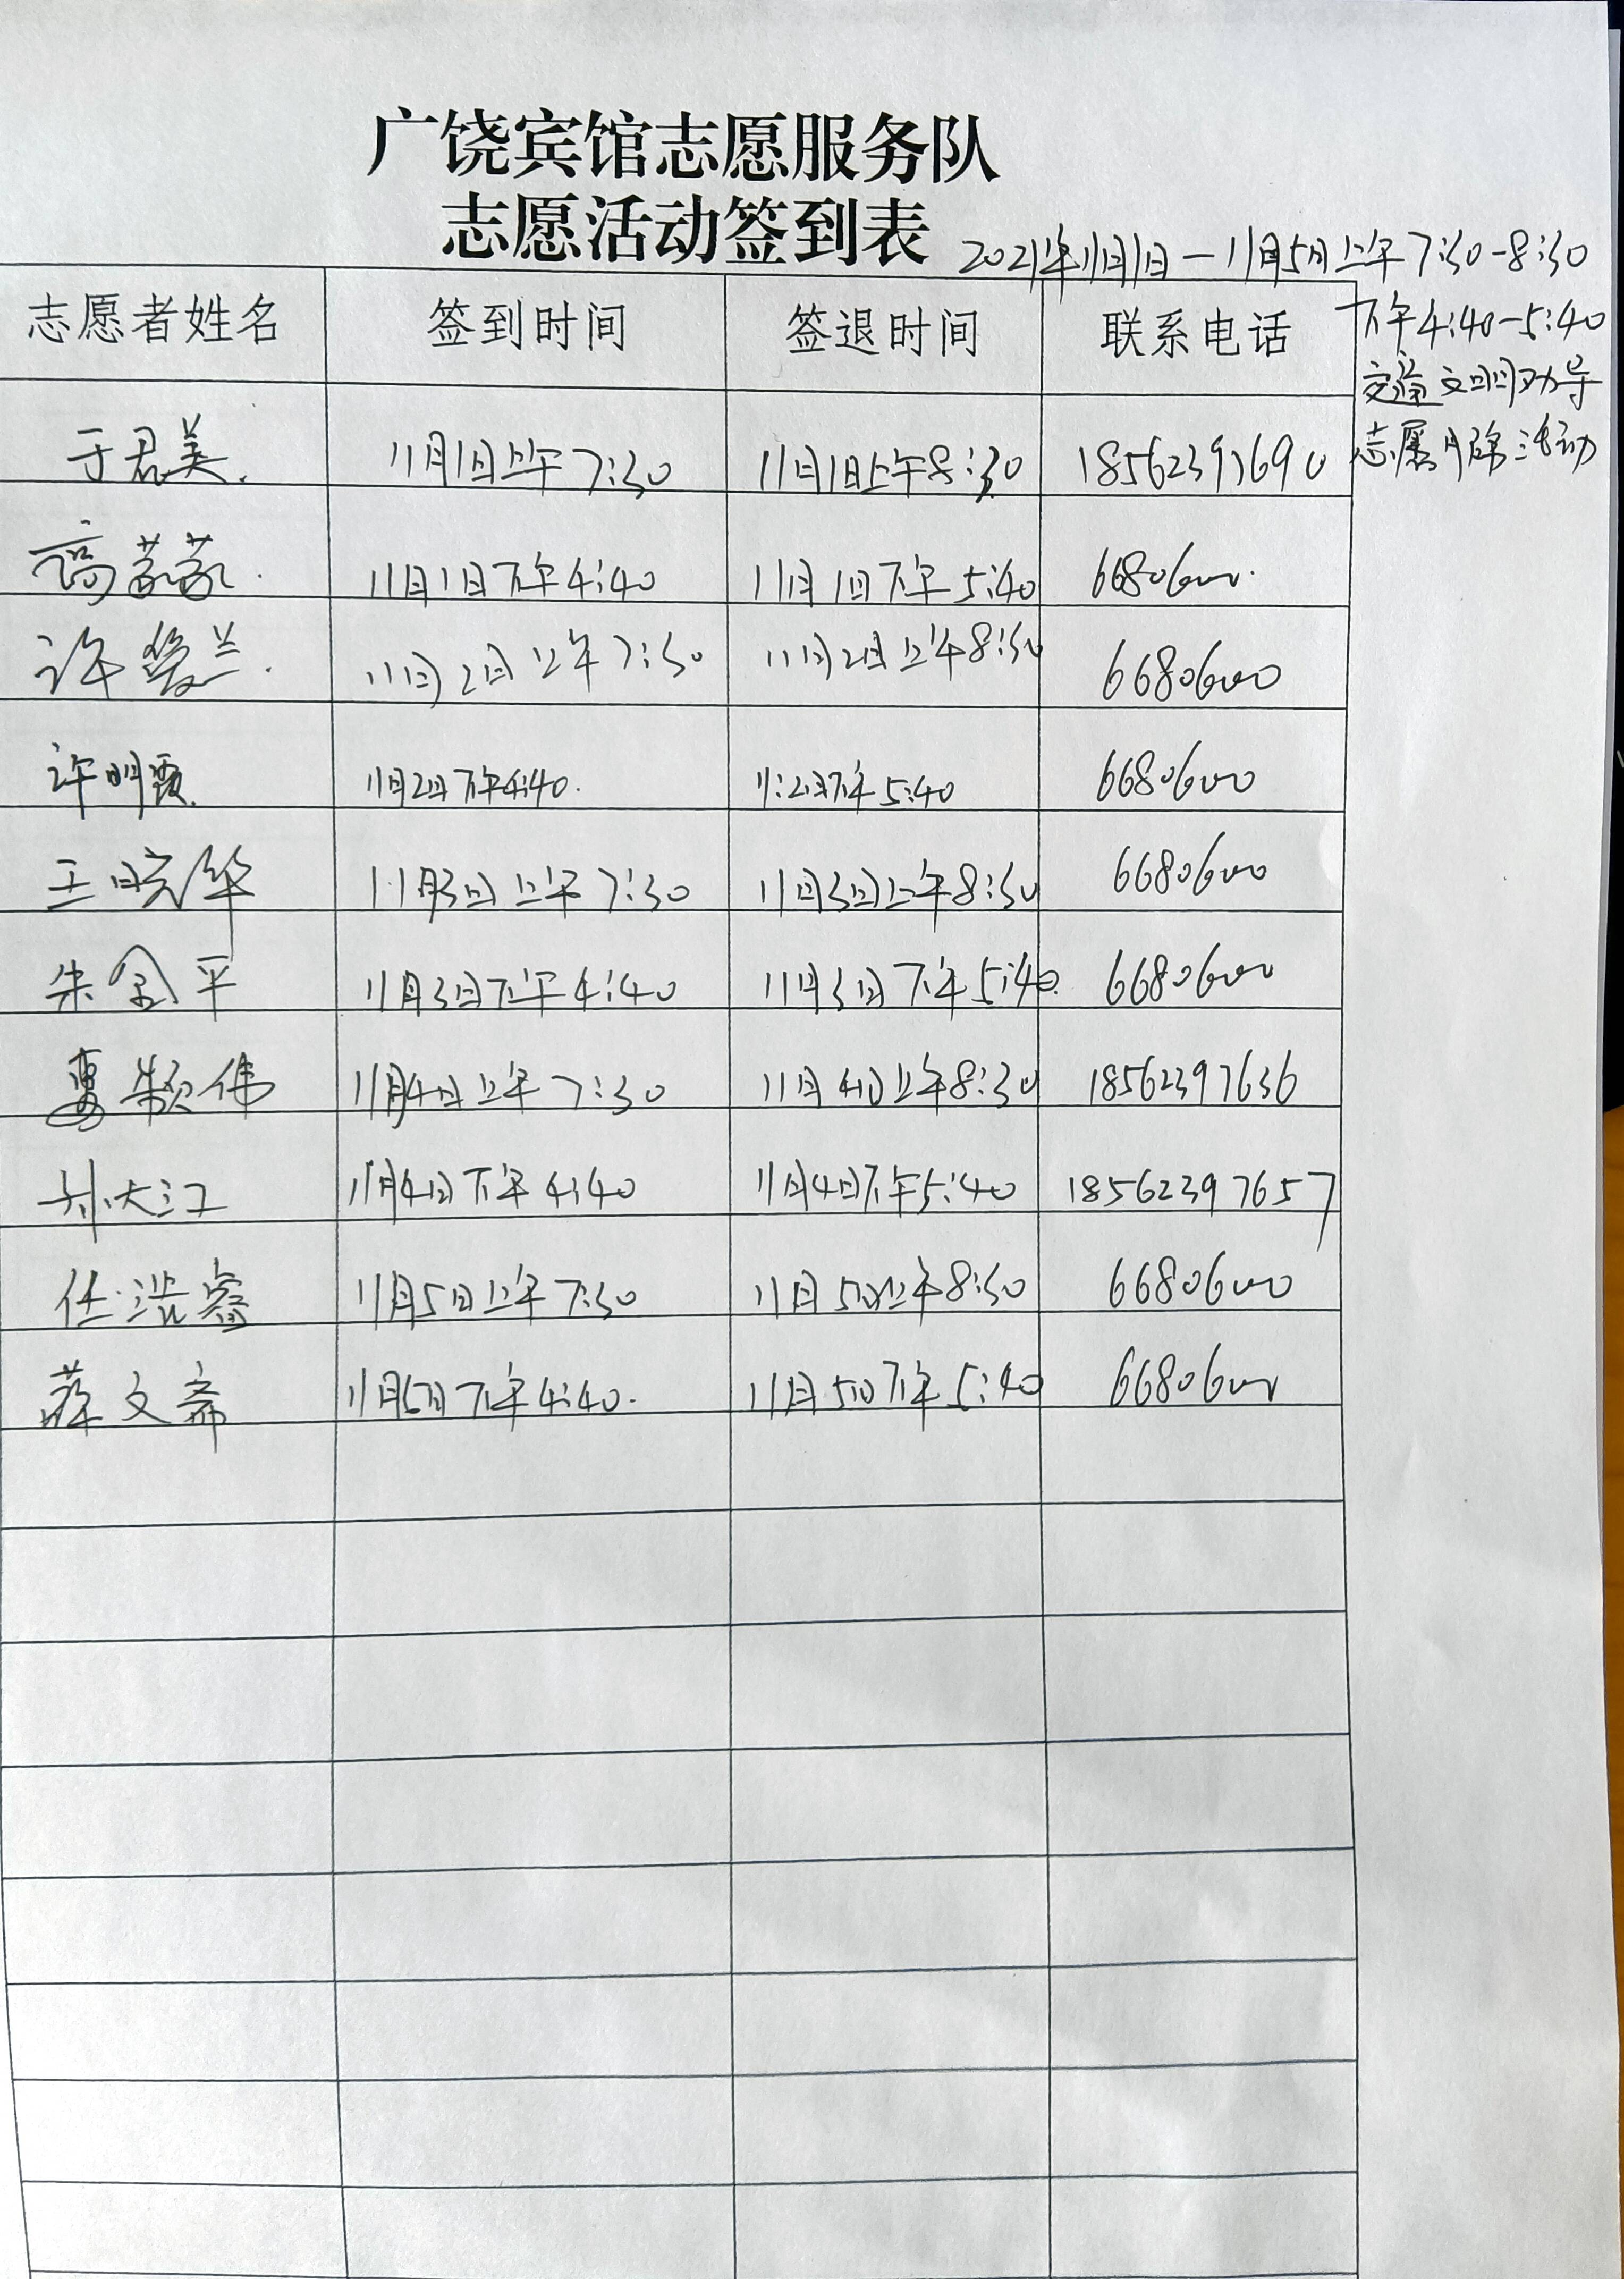 广饶宾馆志愿服务队
志愿活动签到表
2021年11月1日－11月5日上午7:30-8:30
下午4:40-5:40
交通文明劝导
志愿服务活动
志愿者姓名 签到时间 签退时间 联系电话
于君美 11月1日上午7:30 11月1日上午8:30 18562397690
11月1日下午4:40 11月1日下午5:40 6680600
许爱兰 11月2日上午7:30 11月2日上午8:30 6680600
许明霞 11月2日下午4:40 11:2日下午5:40 6680600
王晓华 11月3日上午7:30 11月3日上午8:30 6680600
朱金平 11月3日下午4:40 11月3日下午5:40 6680600
11月4日上午7:30 11月4日上午8:30 18562397636
孙大江 11月4日下午4:40 11月4日下午5:40 18562397657
任浩睿 11月5日上午7:30 11月5日上午8:30 6680600
薛文斋 11月5日下午4:40 11月5日下午5:40 6680600